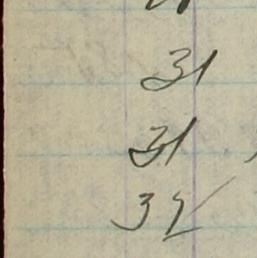 31
31
32